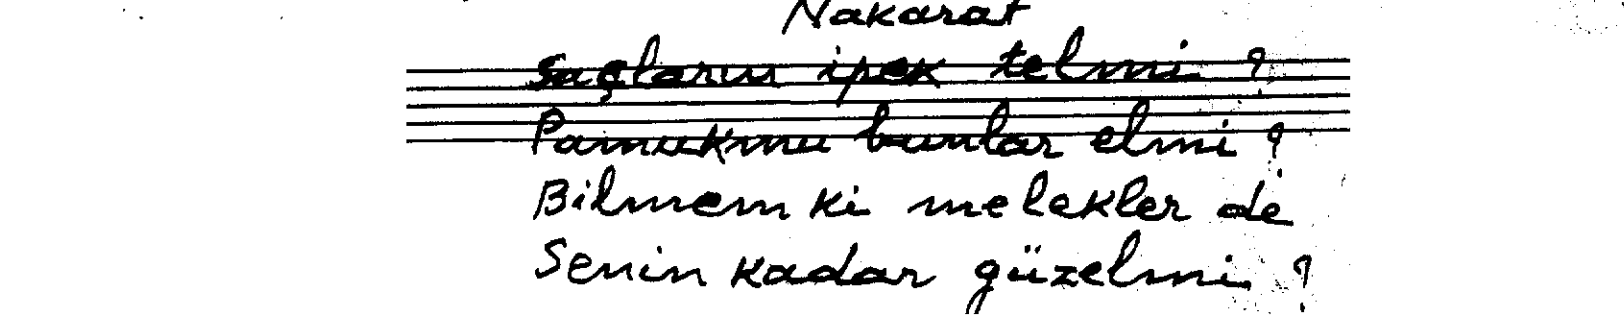 Nakarat
Saçların ipek telmi ?
Pamukmu bunlar elmi ?
Bilmem ki melekler de
Senin kadar güzelmi ?